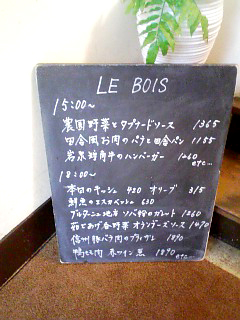 LE BOIS
15:00〜
農園野菜とタプナードソース 1365
田舎風お肉のパテと田舎パン 1155
岩泉短角牛のハンバーガー 1260
etc…
18:00〜
本日のキッシュ 420 オリーブ 315
鮮魚のエスカベッシュ 630
ブルターニュ地方 ソバ粉のガレット 1260
茹であげ春野菜 オランデーズソース 1470
信州豚バラ肉のブライゼ 1890
鴨もも肉 赤ワイン煮 1890 etc…